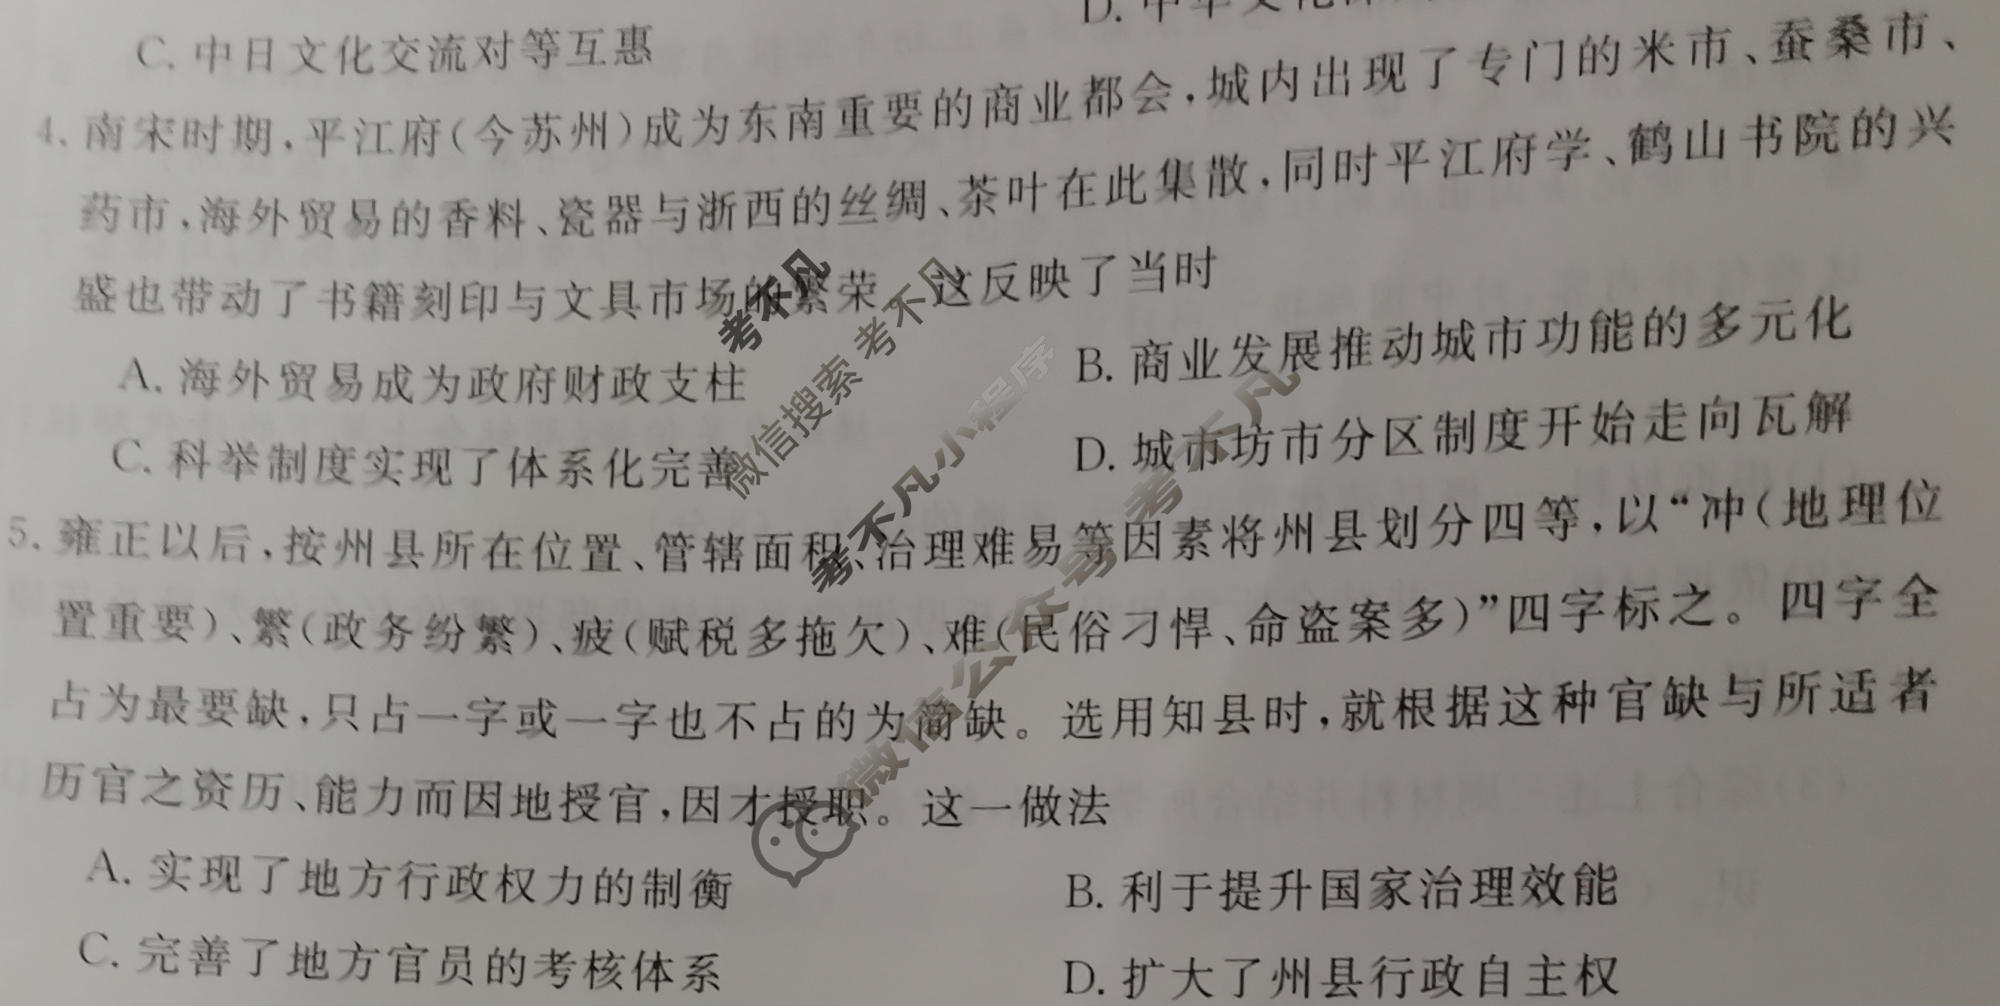 C. 中日文化交流对等互惠
4. 南宋时期,平江府(今苏州)成为东南重要的商业都会,城内出现了专门的米市、蚕桑市、
药市,海外贸易的香料、瓷器与浙西的丝绸、茶叶在此集散,同时平江府学、鹤山书院的兴
盛也带动了书籍刻印与文具市场的繁荣。这反映了当时
A. 海外贸易成为政府财政支柱
B. 商业发展推动城市功能的多元化
C. 科举制度实现了体系化完善
D. 城市坊市分区制度开始走向瓦解
5. 雍正以后,按州县所在位置、管辖面积、治理难易等因素将州县划分四等,以“冲(地理位
置重要)、繁(政务纷繁)、疲(赋税多拖欠)、难(民俗刁悍、命盗案多)”四字标之。四字全
占为最要缺,只占一字或一字也不占的为简缺。选用知县时,就根据这种官缺与所适者
历官之资历、能力而因地授官,因才授职。这一做法
A. 实现了地方行政权力的制衡
B. 利于提升国家治理效能
C. 完善了地方官员的考核体系
D. 扩大了州县行政自主权
考不凡
微信搜索 考不凡
考不凡小程序
微信公众号 考不凡